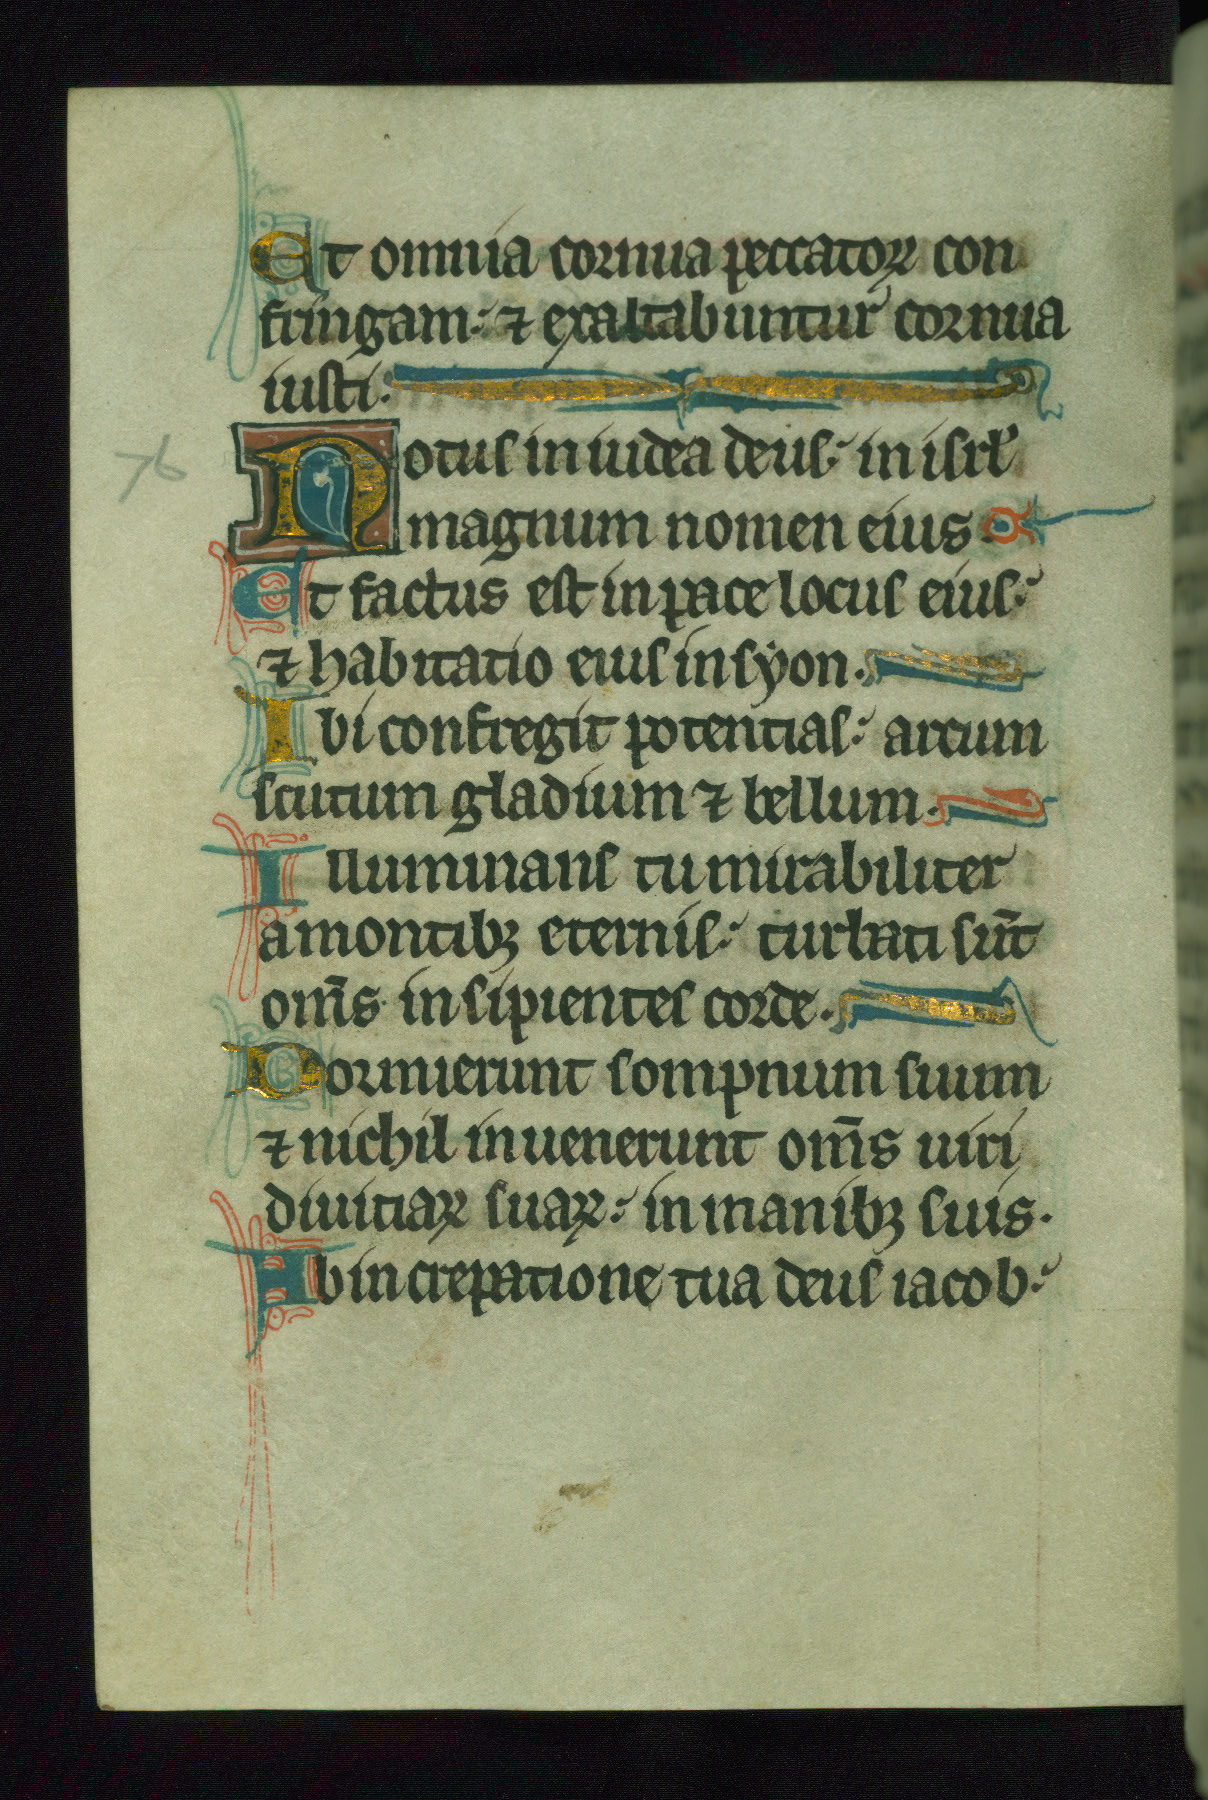 Et omnia cornua peccatoꝝ con
fringam: ⁊ exaltabuntur cornua
iusti.
76
Notus in iudea deus: in isrł
magnum nomen eius.
Et factus est in pace locus eius:
⁊ habitatio eius in syon.
Ibi confregit potentias: arcum
scutum gladium ⁊ bellum.
Illuminans tu mirabiliter
a montibꝫ eternis: turbati sūt
om̄s insipientes corde.
Dormierunt sompnum suum
⁊ nichil inuenerunt om̄s uiri
diuitiaꝝ suaꝝ: in manibꝫ suis.
Ab increpatione tua deus iacob: